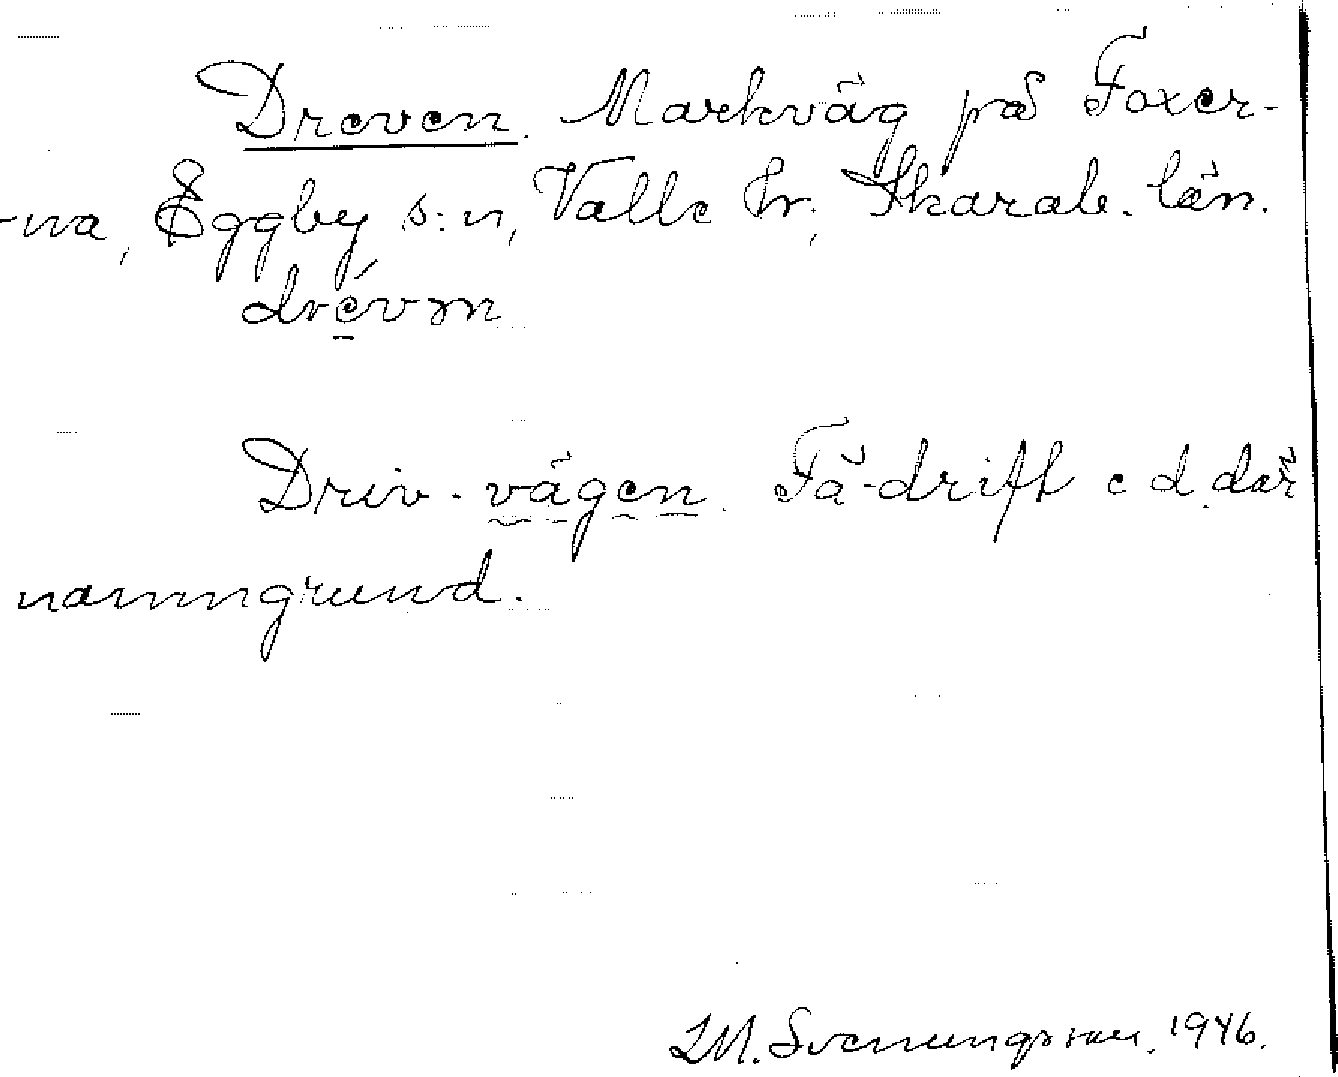 Dreven. Markväg på Foxer-
-na, Eggby s:n, Valle hr, Skarab. län.
drévm
Driv-vägen. Fä-drift e d där
namngrund.
LM. Svenungsson, 1946.